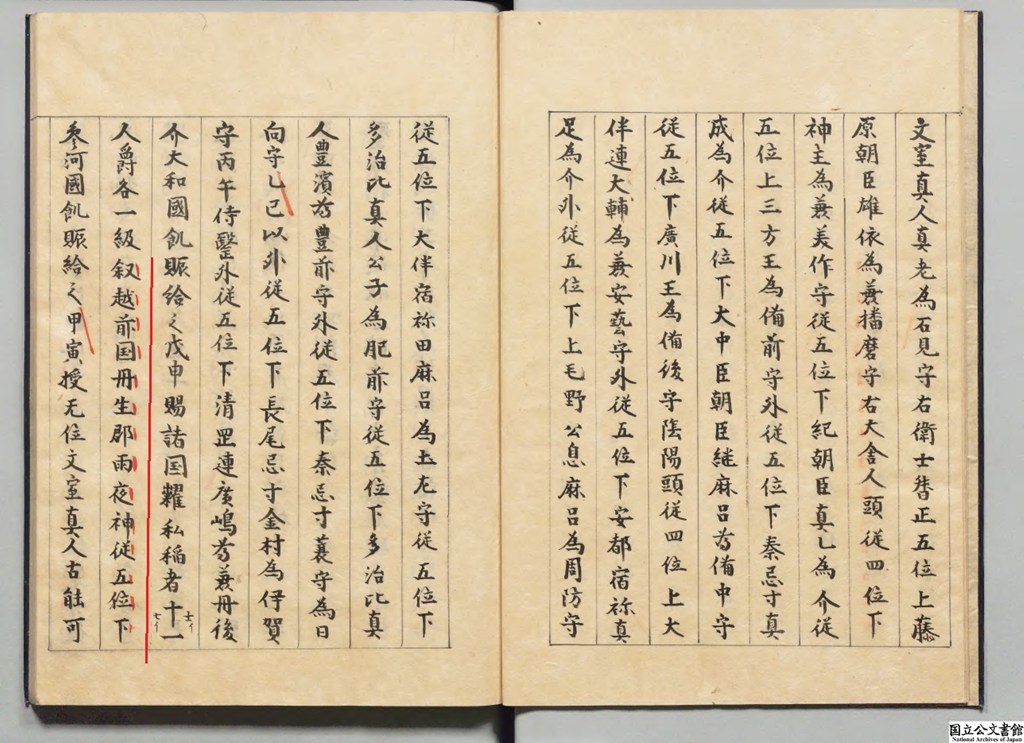 文室真人真老為石見守右衛士督正五位上藤
原朝臣雄依為兼播磨守右大舎人頭従四位下
神主為兼美作守従五位下紀朝臣真乙為介従
五位上三方王為備前守外従五位下秦忌寸真
成為介従五位下大中臣朝臣継麻呂為備中守
従五位下廣川王為備後守陰陽頭従四位上大
伴連大輔為兼安藝守外従五位下安都宿祢真
足為介外従五位下上毛野公息麻呂為周防守
従五位下大伴宿祢田麻呂為土左守従五位下
多治比真人公子為肥前守従五位下多治比真
人豊濱為豊前守外従五位下秦忌寸蓑守為日
向守乙巳以外従五位下長尾忌寸金村為伊賀
守丙午侍醫外従五位下清罡連廣嶋為兼丹後
介大和國飢賑給之戊申賜諸国糶私稲者十一
人爵各一級叙越前国丹生郡雨夜神従五位下
参河國飢賑給之甲寅授无位文室真人古能可
国立公文書館
National Archives of Japan